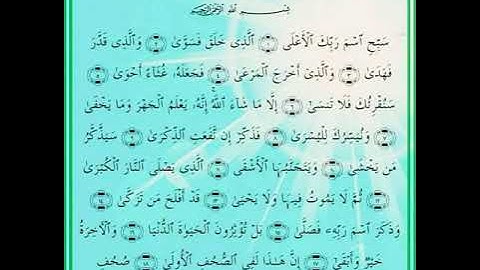 بِسْمِ ٱللَّهِ ٱلرَّحْمَٰنِ ٱلرَّحِيمِ
سَبِّحِ ٱسْمَ رَبِّكَ ٱلْأَعْلَى ١ ٱلَّذِى خَلَقَ فَسَوَّىٰ ٢ وَٱلَّذِى قَدَّرَ
فَهَدَىٰ ٣ وَٱلَّذِىٓ أَخْرَجَ ٱلْمَرْعَىٰ ٤ فَجَعَلَهُۥ غُثَآءً أَحْوَىٰ ٥
سَنُقْرِئُكَ فَلَا تَنسَىٰٓ ٦ إِلَّا مَا شَآءَ ٱللَّهُ ۚ إِنَّهُۥ يَعْلَمُ ٱلْجَهْرَ وَمَا يَخْفَىٰ
٧ وَنُيَسِّرُكَ لِلْيُسْرَىٰ ٨ فَذَكِّرْ إِن نَّفَعَتِ ٱلذِّكْرَىٰ ٩ سَيَذَّكَّرُ
مَن يَخْشَىٰ ١٠ وَيَتَجَنَّبُهَا ٱلْأَشْقَى ١١ ٱلَّذِى يَصْلَى ٱلنَّارَ ٱلْكُبْرَىٰ
١٢ ثُمَّ لَا يَمُوتُ فِيهَا وَلَا يَحْيَىٰ ١٣ قَدْ أَفْلَحَ مَن تَزَكَّىٰ ١٤
وَذَكَرَ ٱسْمَ رَبِّهِۦ فَصَلَّىٰ ١٥ بَلْ تُؤْثِرُونَ ٱلْحَيَوٰةَ ٱلدُّنْيَا ١٦ وَٱلْءَاخِرَةُ
خَيْرٌ وَأَبْقَىٰٓ ١٧ إِنَّ هَٰذَا لَفِى ٱلصُّحُفِ ٱلْأُولَىٰ ١٨ صُحُفِ